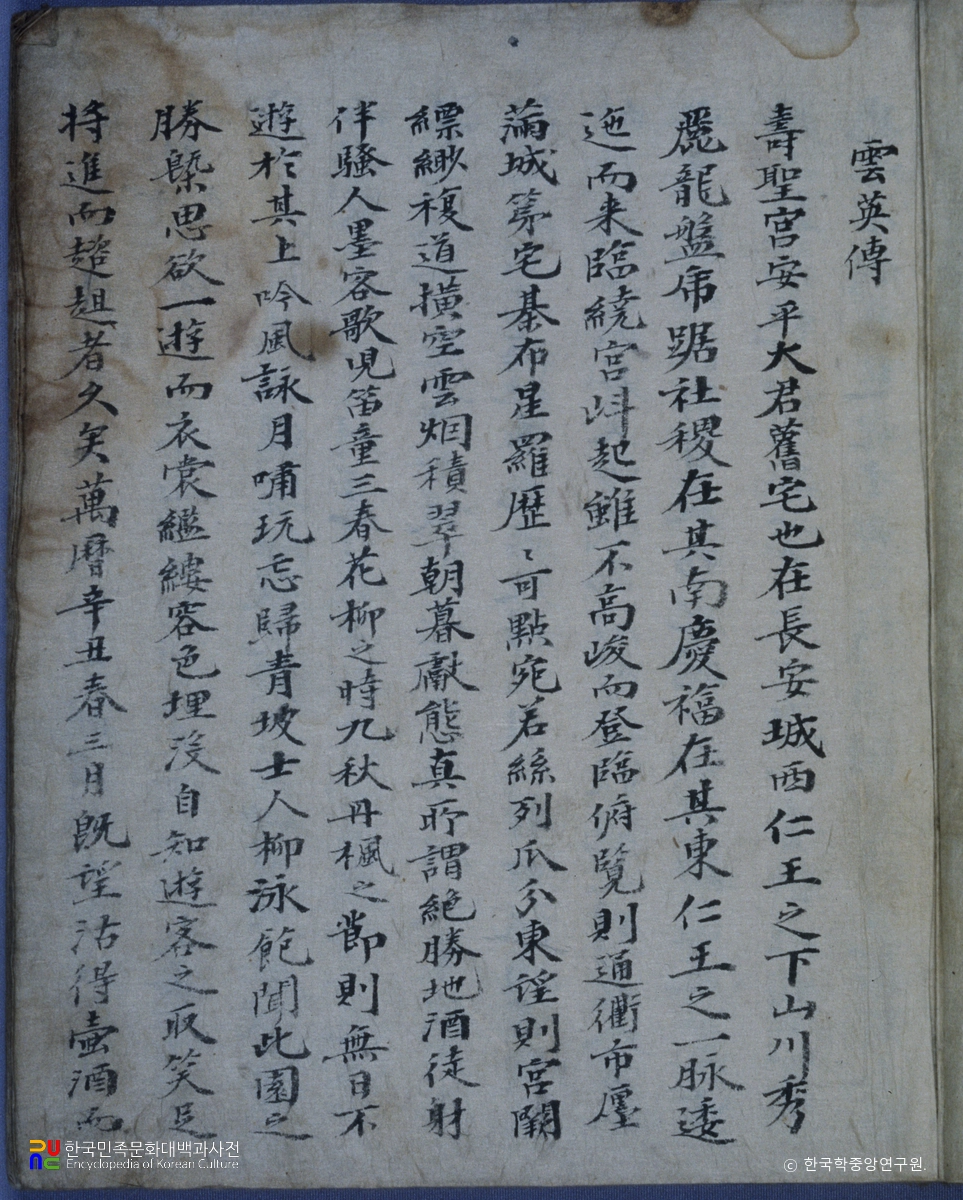 雲英傳
壽聖宮安平大君舊宅也在長安城西仁王之下山川秀
麗龍盤虎踞社稷在其南慶福在其東仁王之一脉逶
迤而来臨繞宮斗起雖不高峻而登臨俯覽則通衢市廛
滿城第宅棊布星羅歷〻可點宛若絲列爪分東望則宮闕
縹緲複道橫空雲烟積翠朝暮獻態真所謂絶勝地酒徒射
伴騷人墨客歌児笛童三春花柳之時九秋丹楓之節則無日不
遊於其上吟風詠月嘯玩忘歸青坡士人柳泳飽聞此園之
勝槩思欲一遊而衣裳繿縷容色埋沒自知遊客之取笑足
将進而趑趄者久矣萬曆辛丑春三月既望沽得壺酒而
한국민족문화대백과사전
Encyclopedia of Korean Culture
ⓒ 한국학중앙연구원.